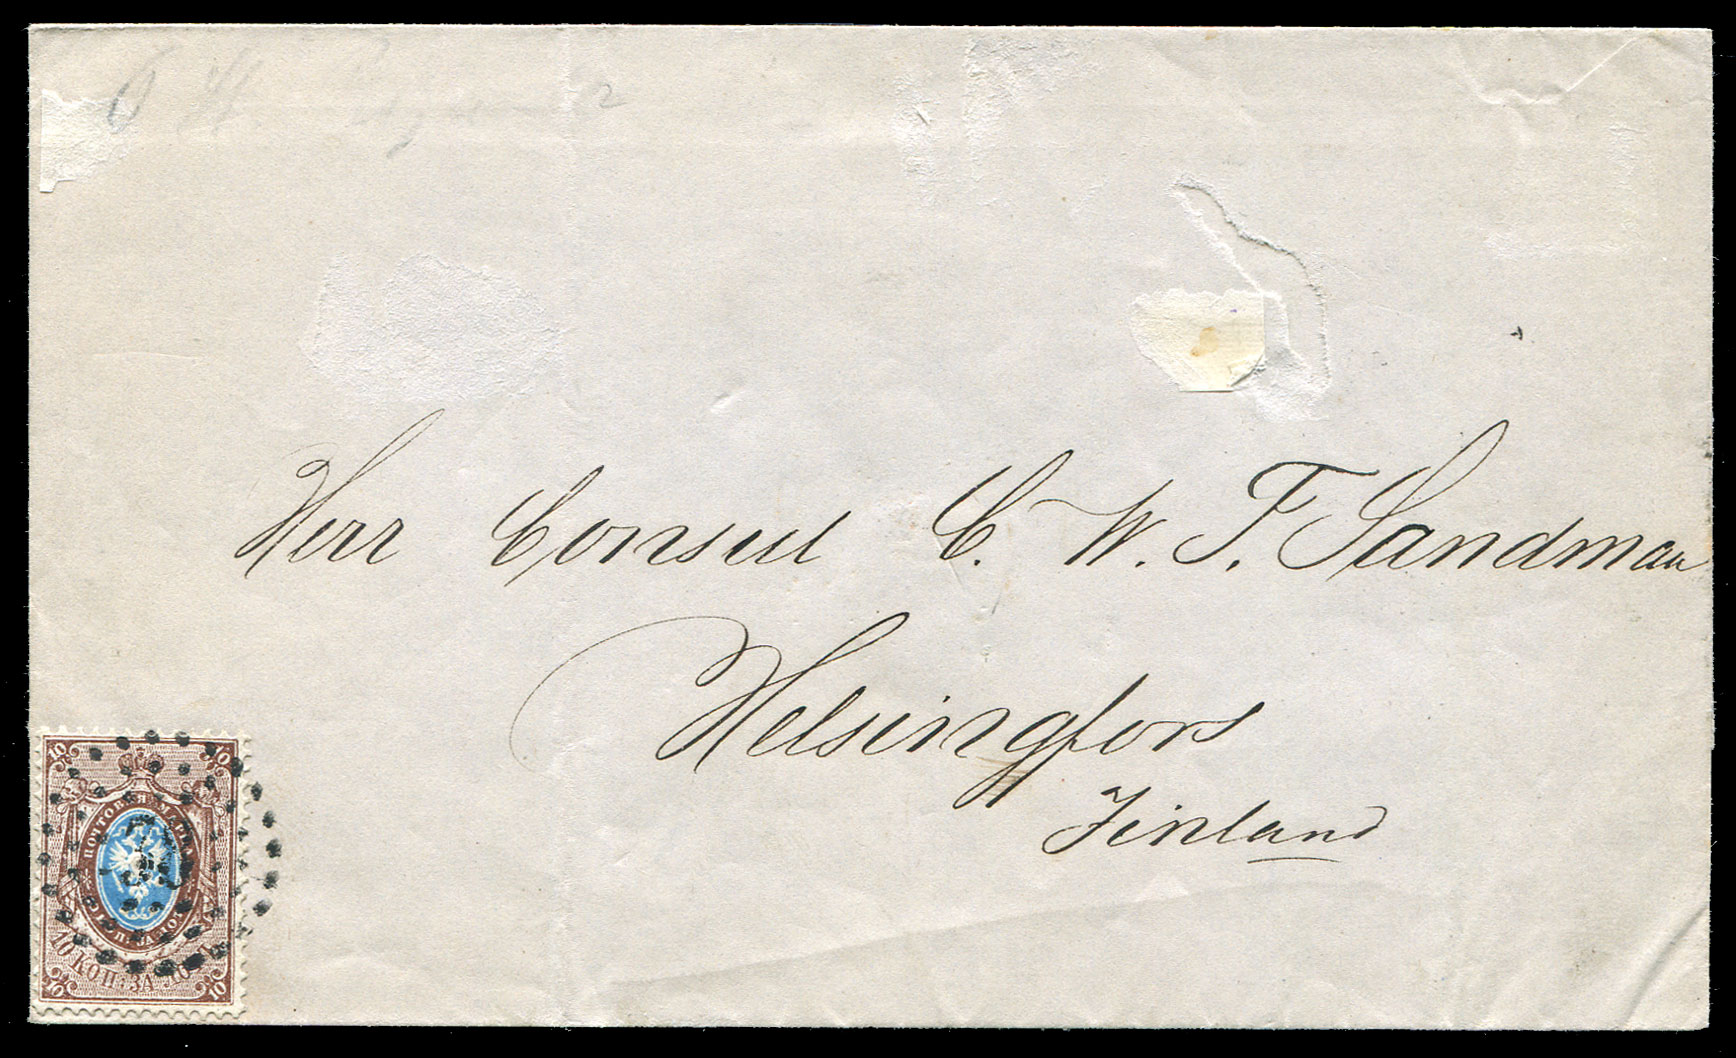 Herr Consul C. W. F. Sandman
Helsingfors
Finland
10 10
ПОЧТОВАЯ МАРКА
10 КОП: ЗА ЛОТЪ
10 10